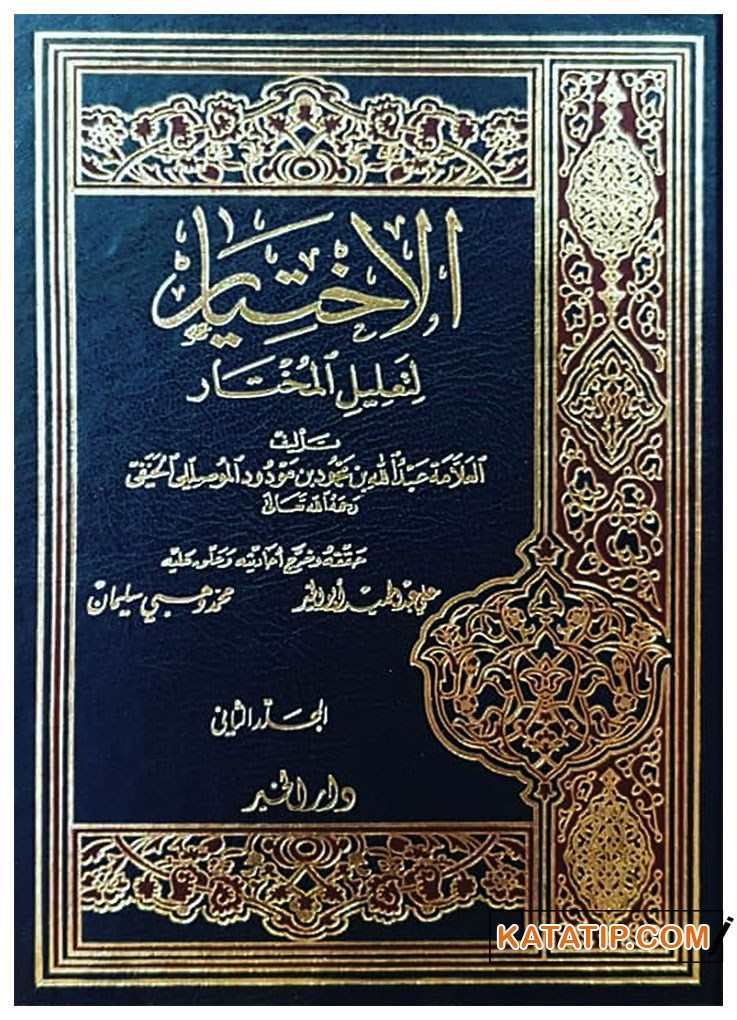 الاختيار
لتعليل المختار
تأليف
العلامة عبد الله بن محمود بن مودود الموصلي الحنفي
رحمه الله تعالى
حققه وخرج أحاديثه وعلق عليه
علي عبد الحميد أبو الخير محمد وهبي سليمان
المجلد الثاني
دار الخير
KATATIP.COM